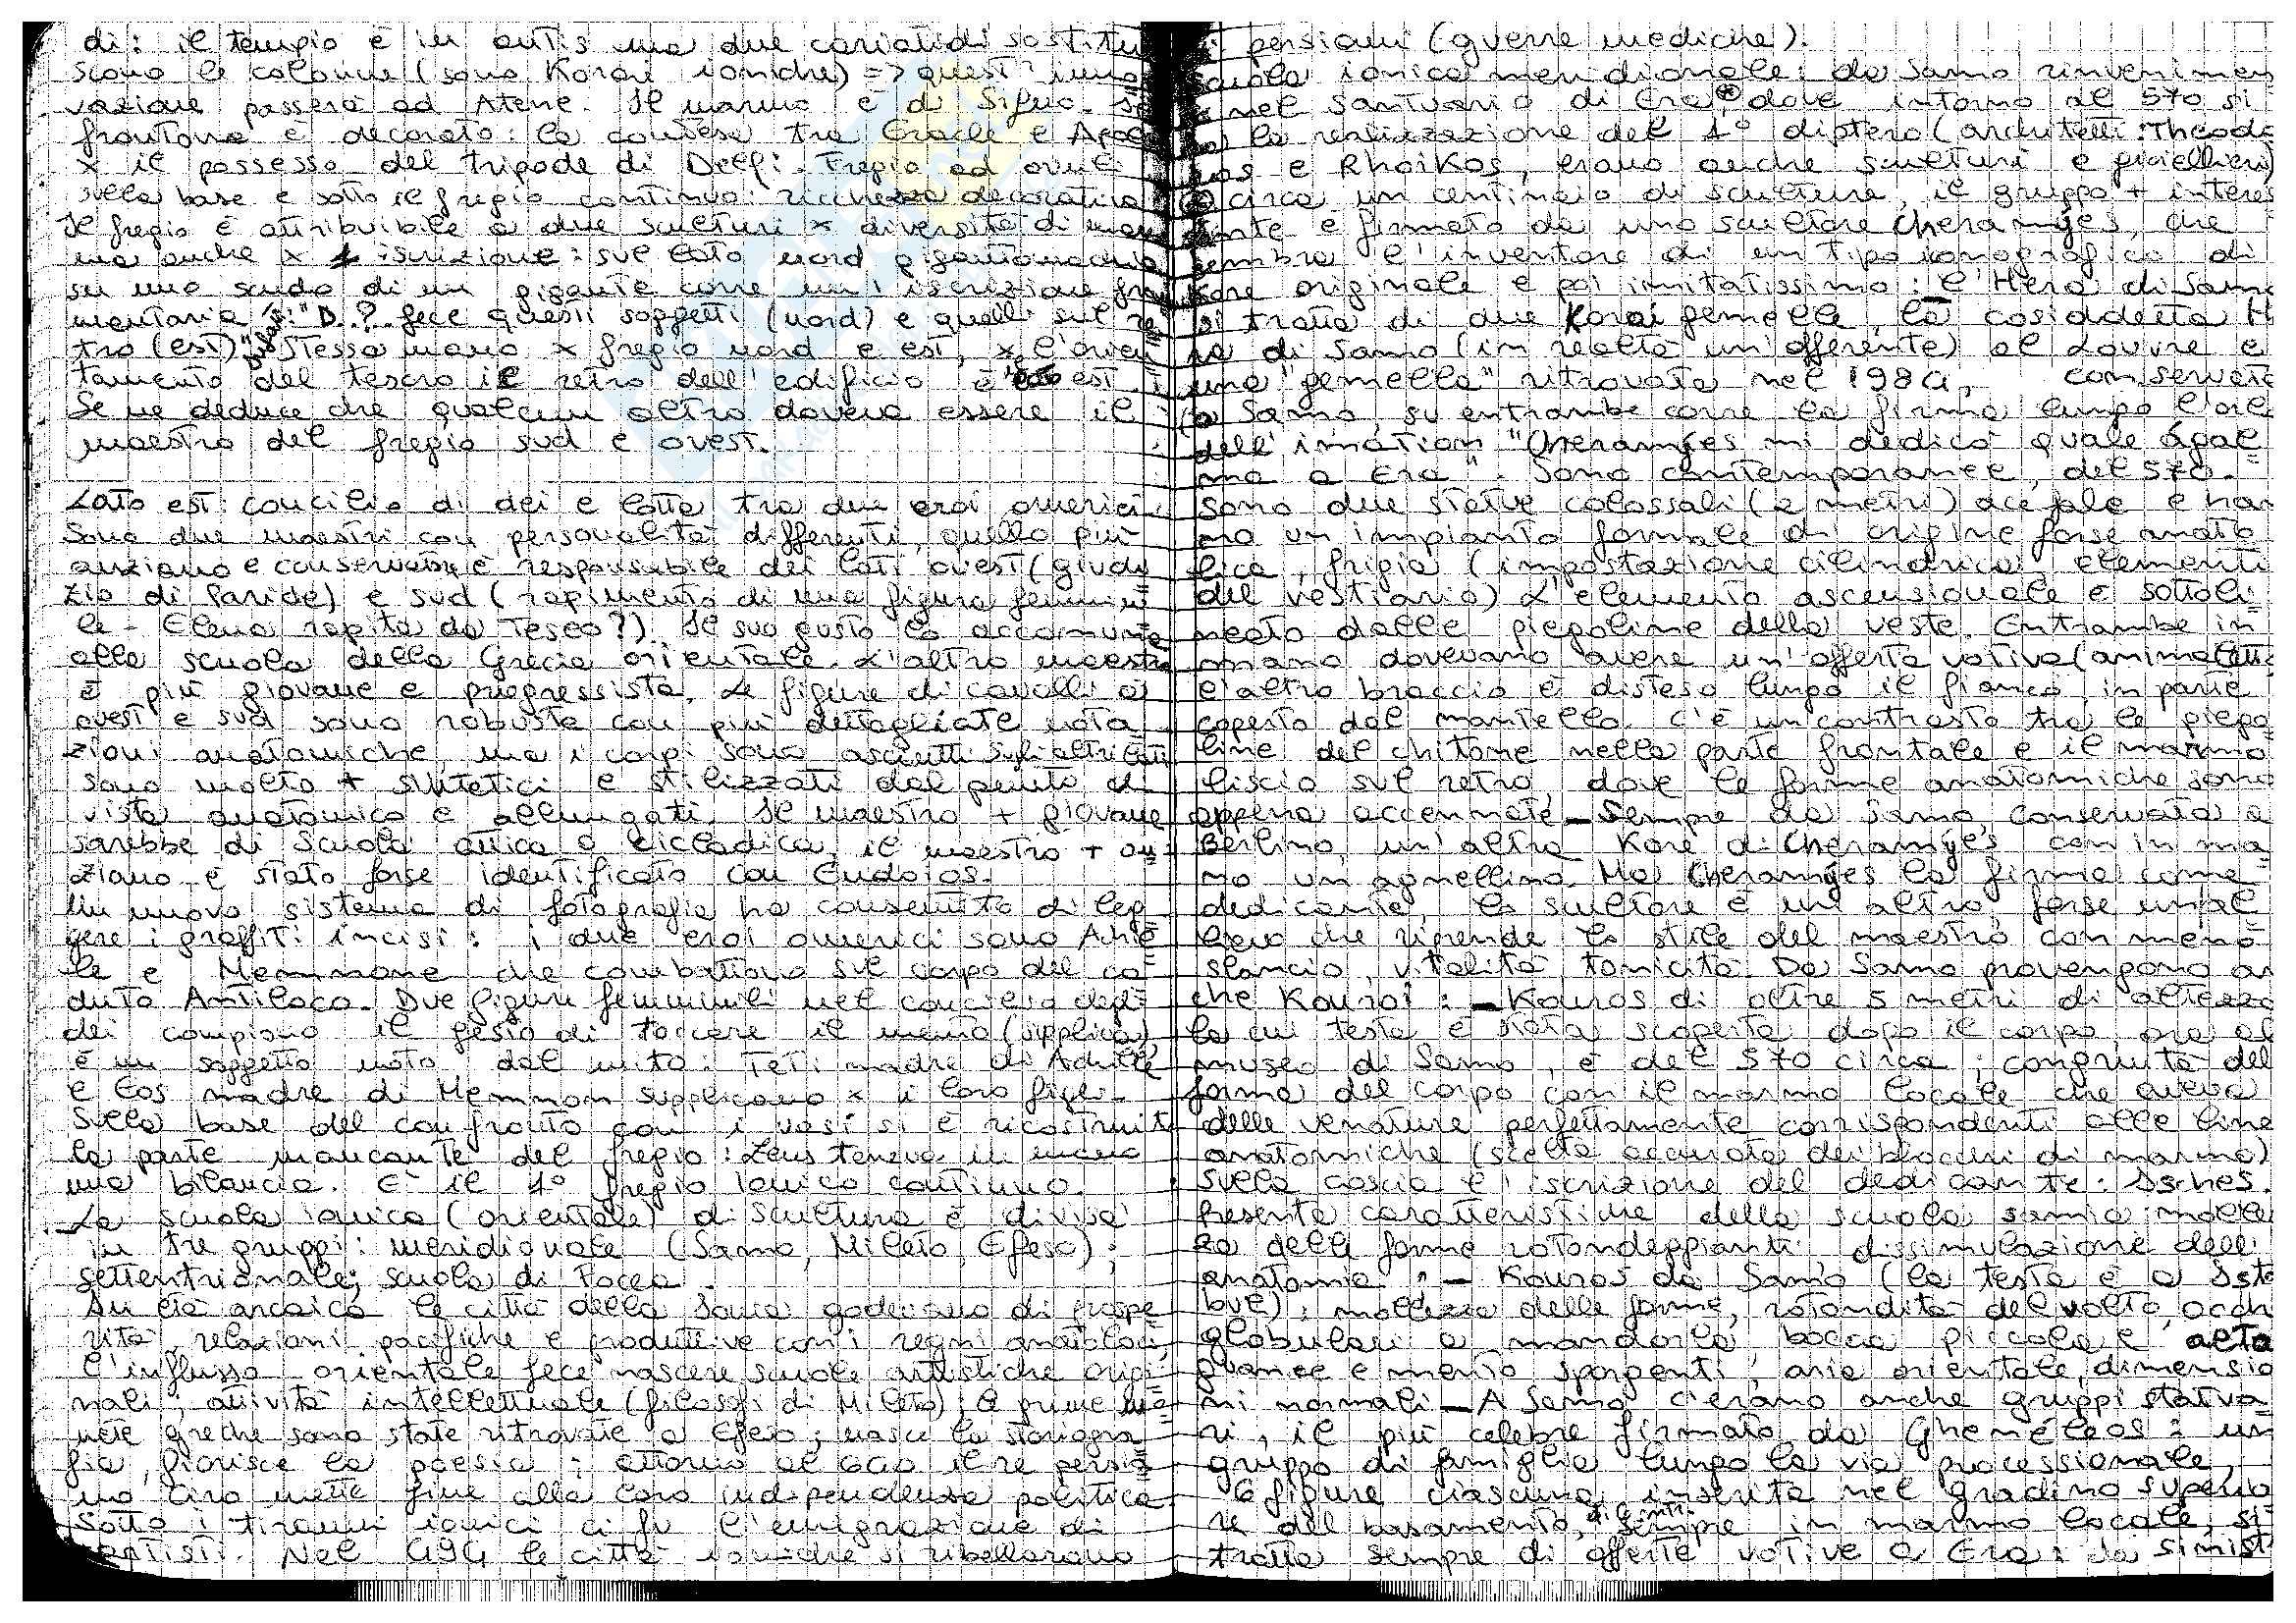 di: il tempio è in antis ma due cariatidi sostitui
scono le colonne (sono Korai ioniche) => quest' inno
vazione passerà ad Atene. Il marmo è di Sifno.
frontone è decorato: la contesa tra Eracle e Apol
x il possesso del tripode di Delfi. Fregio ad ovuli
sulla base e sotto il fregio continuo: ricchezza decorativa
Il fregio è attribuibile a due scultori x diversità di
ma anche x 1 iscrizione: sul lato nord gigantomachia
su uno scudo di un gigante corre un' iscrizione fram
mentaria: "D..? fece questi soggetti (nord) e quelli sul re
tro (est)" stessa mano x fregio nord e est, x l'orien
tamento del tesoro il retro dell' edificio è est.
Se ne deduce che qualcun altro doveva essere il
maestro del fregio sud e ovest.
Lato est: concilio di dei e lotta tra due eroi omerici.
Sono due maestri con personalità differenti, quello più
anziano e conservatore è responsabile dei lati ovest (giudi
zio di Paride) e sud (rapimento di una figura femmini
le - Elena rapita da Teseo?). Il suo gusto lo accomuna
alla scuola della Grecia orientale. L'altro maestro
è più giovane e progressista. Le figure di cavalli a
ovest e sud sono robuste con più dettagliate nota
zioni anatomiche, ma i corpi sono asciutti. Sugli altri lati
sono molto + sintetici e stilizzati dal punto di
vista anatomico e allungati. Il maestro + giovane
sarebbe di Scuola attica o cicladica, il maestro + an
ziano è stato forse identificato con Endoios.
Un nuovo sistema di fotografia ha consentito di leg
gere i graffiti incisi: i due eroi omerici sono Achil
le e Memnone che combattono sul corpo del ca
duto Antiloco. Due figure femminili nel concilio degli
dei compiono il gesto di toccare il mento (supplica),
è un soggetto noto dal mito: Teti madre di Achille
e Eos madre di Memnon supplicano x i loro figli.
Sulla base del confronto con i vasi si è ricostruita
la parte mancante del fregio: Zeus teneva in mano
una bilancia. È il 1° fregio ionico continuo.
La scuola ionica (orientale) di scultura è divisa
in tre gruppi: meridionale (Samo, Mileto Efeso);
settentrionale; scuola di Focea.
In età arcaica le città della Ionia godevano di prospe
rità, relazioni pacifiche e produttive con i regni anatolici,
l'influsso orientale fece nascere scuole artistiche origi
nali, attività intellettuale (filosofi di Mileto); le prime mo
nete greche sono state ritrovate a Efeso; nasce la storiogra
fia, fiorisce la poesia; attorno al 600 il re persia
no Ciro mette fine alla loro indipendenza politica.
Sotto i tiranni ionici ci fu l'emigrazione di
artisti. Nel 494 le città ioniche si ribellarono
persiani (guerre mediche).
scuola ionica meridionale: da Samo rinvenimen
nel santuario di Era dove intorno al 570 si
la realizzazione del 1° diptero (architetti: Theodo
ros e Rhoikos, erano anche scultori e gioiellieri)
circa un centinaio di sculture, il gruppo + interes
sante è firmato da uno scultore Cheramýes, che
sembra l'inventore di un tipo iconografico di
kore originale e poi imitatissimo: l'Hera di Samo
si tratta di due Korai gemelle, la cosiddetta H
ra di Samo (in realtà un'offerente) al Louvre e
una "gemella" ritrovata nel 1984, conservata
a Samo, su entrambe corre la firma lungo l'orlo
dell' imation "Cheramýes mi dedicò quale ágal
ma a Era". Sono contemporanee, del 570.
Sono due statue colossali (2 metri) acefale e han
no un impianto formale di origine forse anato
lica, frigia (impostazione cilindrica, elementi
del vestiario) L'elemento ascensionale è sottoli
neato dalle piegoline della veste. Entrambe in
mano dovevano avere un'offerta votiva (animaletti)
l'altro braccio è disteso lungo il fianco, in parte
coperto dal mantello. C'è un contrasto tra le piego
line del chitone nella parte frontale e il marmo
liscio sul retro, dove le forme anatomiche sono
appena accennate - Sempre da Samo conservata a
Berlino, un' altra Kore di Cheramýes con in ma
no un agnellino. Ma Cheramýes la firma come
dedicante, lo scultore è un altro, forse un al
lievo che riprende lo stile del maestro con meno
slancio, vitalità, tonicità. Da Samo provengono an
che Kouroi: - Kouros di oltre 5 metri di altezza
la cui testa è stata scoperta dopo il corpo, ora al
museo di Samo, è del 570 circa; congruità del
forma del corpo con il marmo locale che aveva
delle venature perfettamente corrispondenti alle line
anatomiche (scelta accurata dei blocchi di marmo)
Sulla coscia l'iscrizione del dedicante: Isches.
Presenta caratteristiche della scuola samia: mollez
za delle forme rotondeggianti dissimulazione dell'
anatomia. - Kouros da Samo (la testa è a Ista
bul): mollezza delle forme, rotondità del volto, occhi
globulari a mandorla, bocca piccola e alta
guance e mento sporgenti, aria orientale, dimensio
ni normali - A Samo c'erano anche gruppi statua
ri, il più celebre firmato da Ghenéleos: un
gruppo di famiglia lungo la via processionale,
6 figure ciascuna inserita nel gradino superio
re del basamento, sempre in marmo locale, si
tratta sempre di offerte votive a Era: da sinist